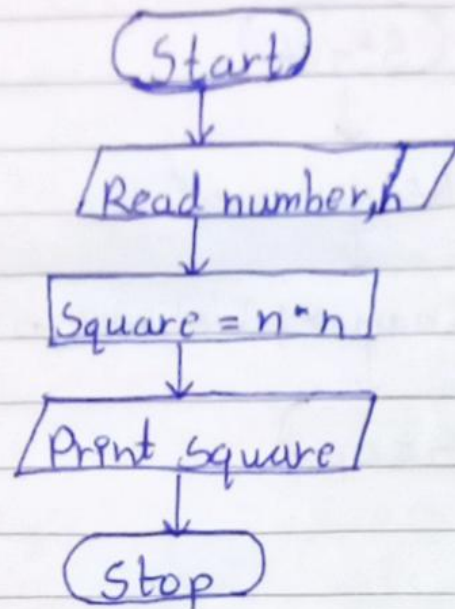 Start
Read number, n
Square = n * n
Print square
Stop